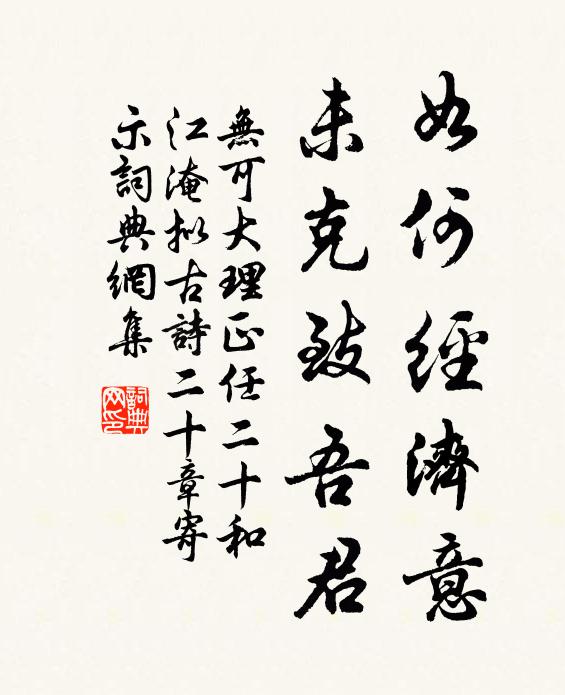 如何經濟意
未克致吾君
無可大理正任二十和
江淹拟古詩二十章寄
示詞典網集
詞典网印